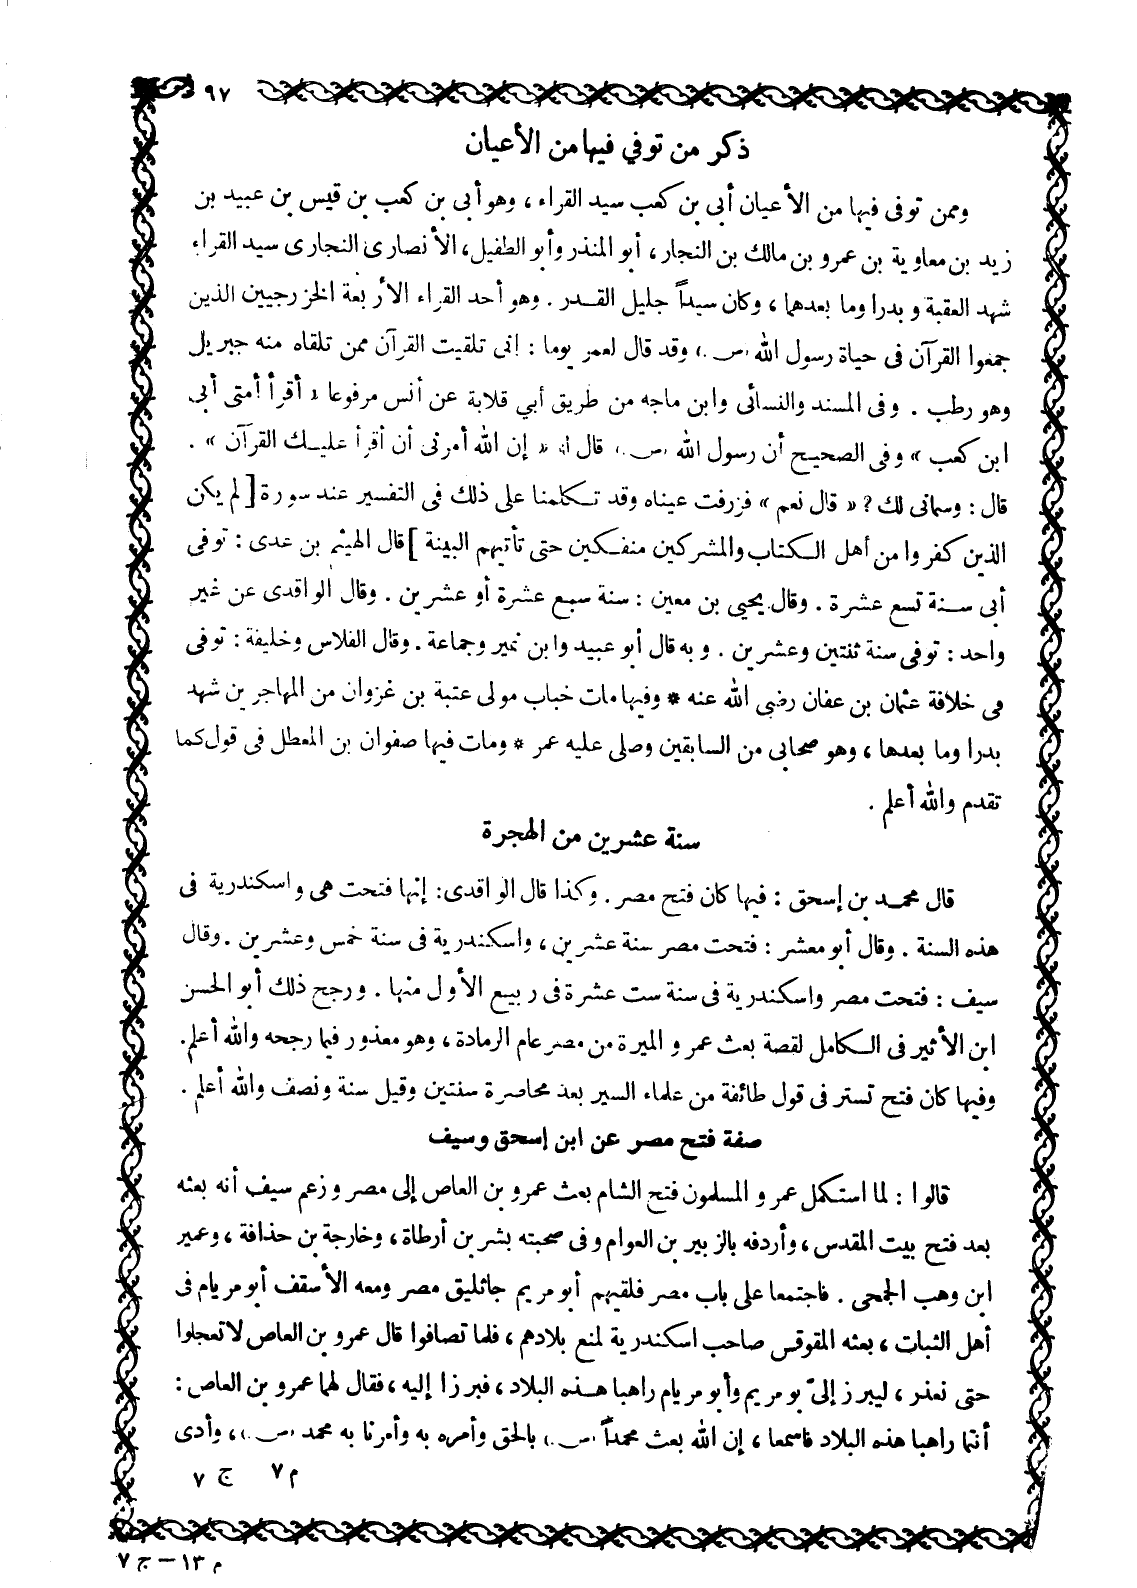 ٩٧
ذكر من توفي فيها من الأعيان
وممن توفى فيها من الأعيان أبي بن كعب سيد القراء ، وهو أبي بن كعب بن قيس بن عبيد بن
زيد بن معاوية بن عمرو بن مالك بن النجار ، أبو المنذر وأبو الطفيل ، الأنصارى النجارى سيد القراء
شهد العقبة وبدرا وما بعدهما ، وكان سيداً جليل القدر . وهو أحد القراء الأربعة الخزرجيين الذين
جمعوا القرآن فى حياة رسول الله (ص.) وقد قال لعمر يوما : إنى تلقيت القرآن ممن تلقاه منه جبريل
وهو رطب . وفى المسند والنسائى وابن ماجه من طريق أبي قلابة عن أنس مرفوعا « أقرأ أمتى أبى
ابن كعب » وفى الصحيح أن رسول الله (ص.) قال له « إن الله أمرنى أن أقرأ عليك القرآن » .
قال : وسمانى لك ? « قال نعم » فزرفت عيناه وقد تكلمنا على ذلك فى التفسير عند سورة [ لم يكن
الذين كفروا من أهل الكتاب والمشركين منفكين حتى تأتيهم البينة ] قال الهيثم بن عدى : توفى
أبى سنة تسع عشرة . وقال يحيى بن معين : سنة سبع عشرة أو عشرين . وقال الواقدى عن غير
واحد : توفى سنة ثنتين وعشرين . وبه قال أبو عبيد وابن نمير وجماعة . وقال الفلاس وخليفة : توفى
فى خلافة عثمان بن عفان رضى الله عنه * وفيها مات خباب مولى عتبة بن غزوان من المهاجرين شهد
بدرا وما بعدها ، وهو صحابى من السابقين وصلى عليه عمر * ومات فيها صفوان بن المعطل فى قول كما
تقدم والله أعلم .
سنة عشرين من الهجرة
قال محمد بن إسحق : فيها كان فتح مصر . وكذا قال الواقدى : إنها فتحت هى واسكندرية فى
هذه السنة . وقال أبو معشر : فتحت مصر سنة عشرين ، واسكندرية فى سنة خمس وعشرين . وقال
سيف : فتحت مصر واسكندرية فى سنة ست عشرة فى ربيع الأول منها . ورجح ذلك أبو الحسن
ابن الأثير فى الكامل لقصة بعث عمرو الميرة من مصر عام الرمادة ، وهو معذور فيما رجحه والله أعلم.
وفيها كان فتح تستر فى قول طائفة من علماء السير بعد محاصرة سنتين وقيل سنة ونصف والله أعلم .
صفة فتح مصر عن ابن إسحق وسيف
قالوا : لما استكمل عمر و المسلمون فتح الشام بعث عمرو بن العاص إلى مصر وزعم سيف أنه بعثه
بعد فتح بيت المقدس ، وأردفه بالزبير بن العوام وفى صحبته بشر بن أرطاة ، وخارجة بن حذافة ، وعمير
ابن وهب الجمحى . فاجتمعا على باب مصر فلقيهم أبو مريم جاثليق مصر ومعه الأسقف أبو مريام فى
أهل الثبات ، بعثه المقوقس صاحب اسكندرية لمنع بلادهم ، فلما تصافوا قال عمرو بن العاص لا تعجلوا
حتى نعذر ، ليبرز إلىّ بو مريم وأبو مريام راهبا هذه البلاد ، فبرزا إليه ، فقال لهما عمرو بن العاص :
أنتما راهبا هذه البلاد فاسمعا ، إن الله بعث محمداً (ص.) بالحق وأمره به وأمرنا به محمد (ص.) ، وأدى
م ٧ ج ٧
م ١٣ – ج ٧